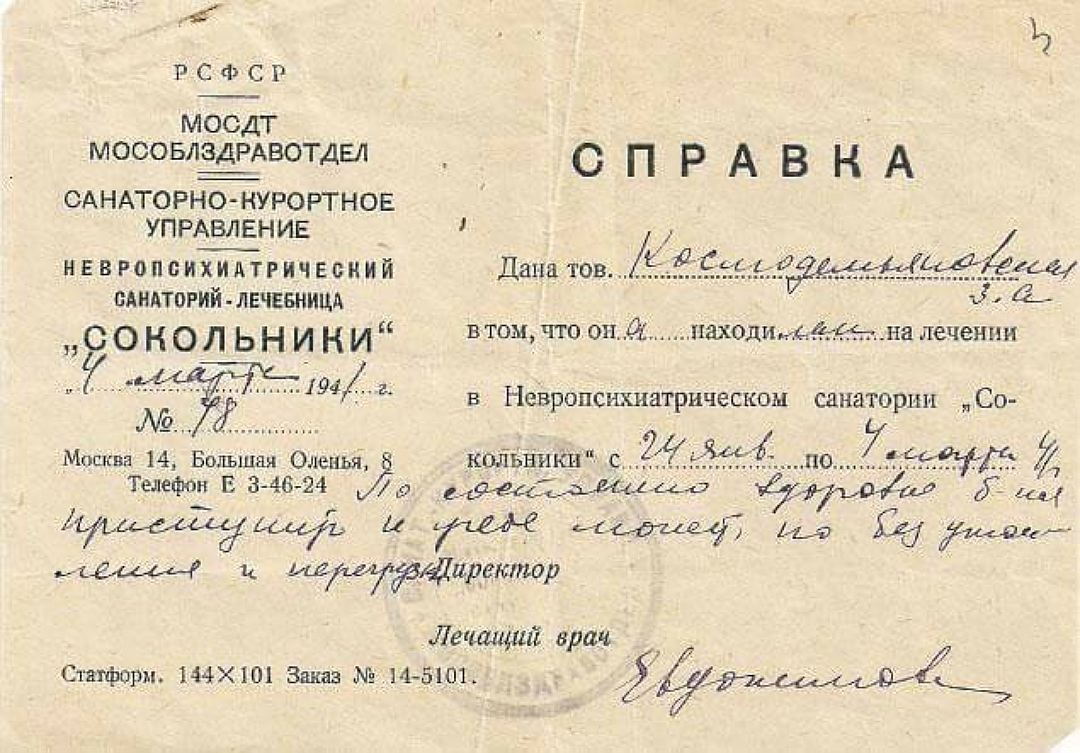 РСФСР
МОСДТ
МОСОБЛЗДРАВОТДЕЛ
САНАТОРНО-КУРОРТНОЕ
УПРАВЛЕНИЕ
НЕВРОПСИХИАТРИЧЕСКИЙ
САНАТОРИЙ-ЛЕЧЕБНИЦА
„СОКОЛЬНИКИ“
„4 марта 1941 г.
№ 78
Москва 14, Большая Оленья, 8
Телефон Е 3-46-24
СПРАВКА
Дана тов. Космодемьяновская
З. А
в том, что она находилась на лечении
в Невропсихиатрическом санатории „Со-
кольники“ с 24 янв. по 4 марта 41
По состоянию здоровья б-ная
приступить к учебе может, но без утом-
ления и перегрузки
Директор
Лечащий врач
Евдокимова
Статформ. 144×101 Заказ № 14-5101.